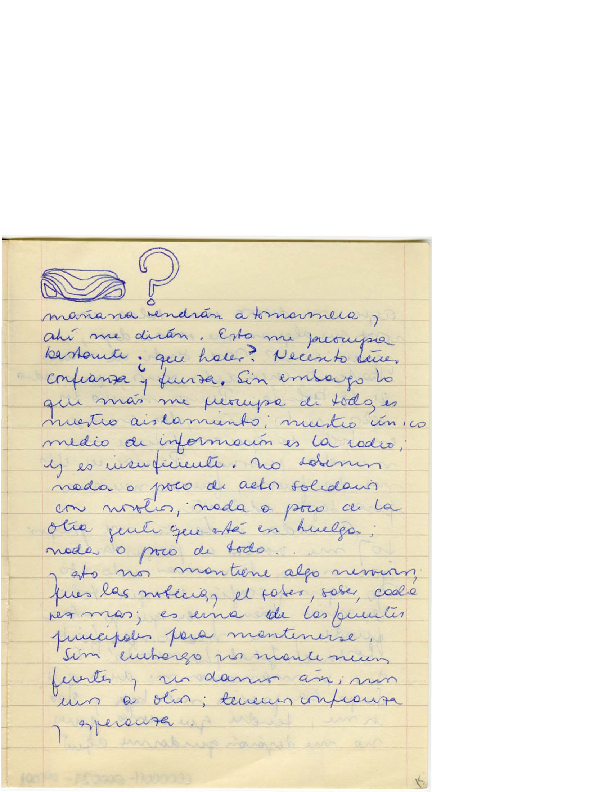 ?
mañana vendrán a tomármela y
ahí me dirán. Esto me preocupa
bastante. ¿que hacer? Necesito tener
confianza y fuerza. Sin embargo lo
que más me preocupa de todo, es
nuestro aislamiento; nuestro único
medio de información es la radio;
y es insuficiente. No sabemos
nada o poco de actos solidarios
con nosotros; nada o poco de la
otra gente que está en huelga;
nada o poco de todo...
y esto nos mantiene algo nerviosos,
pues las noticias, el saber, saber, cada
vez mas; es una de las fuentes
principales para mantenerse.
Sin embargo nos mantenemos
fuertes y nos damos
unos a otros; tenemos confianza
y esperanza